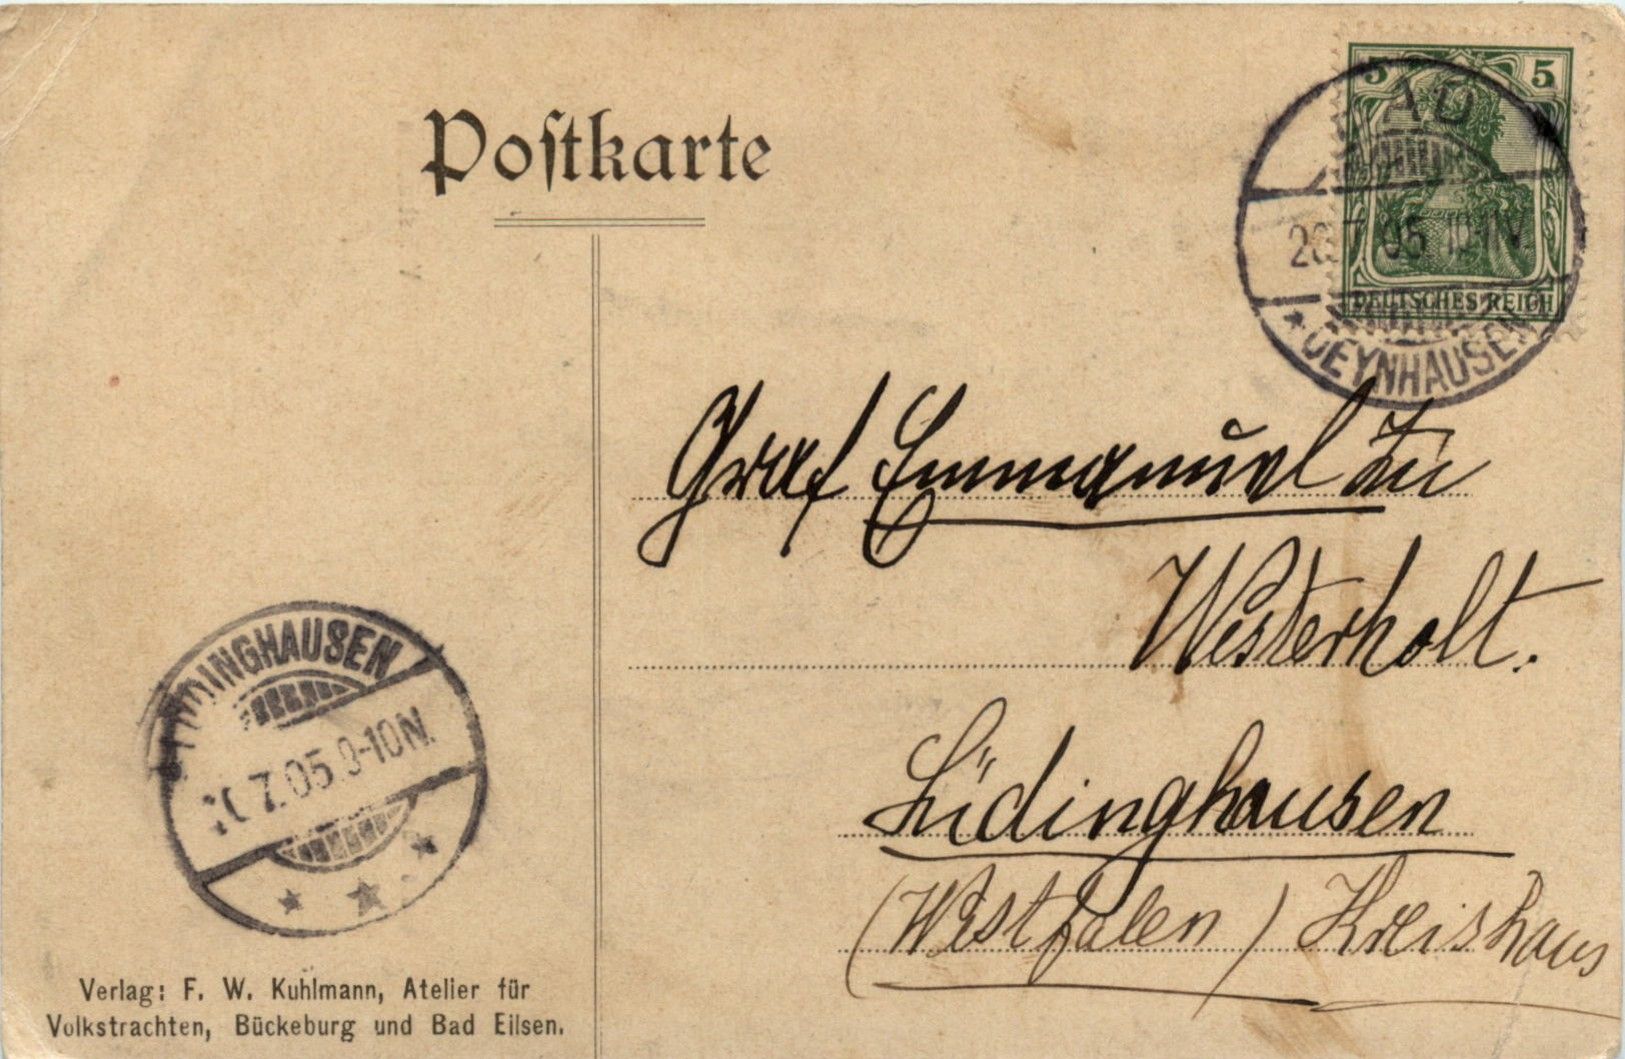 Postkarte
5 5
BAD
7 05 12-1N
DEUTSCHES REICH
OEYNHAUSEN
Graf Emmanuel zu
Westerholt.
Lüdinghausen
(Westfalen) Kreishaus
LÜDINGHAUSEN
7.05.9-10N.
Verlag: F. W. Kuhlmann, Atelier für
Volkstrachten, Bückeburg und Bad Eilsen.